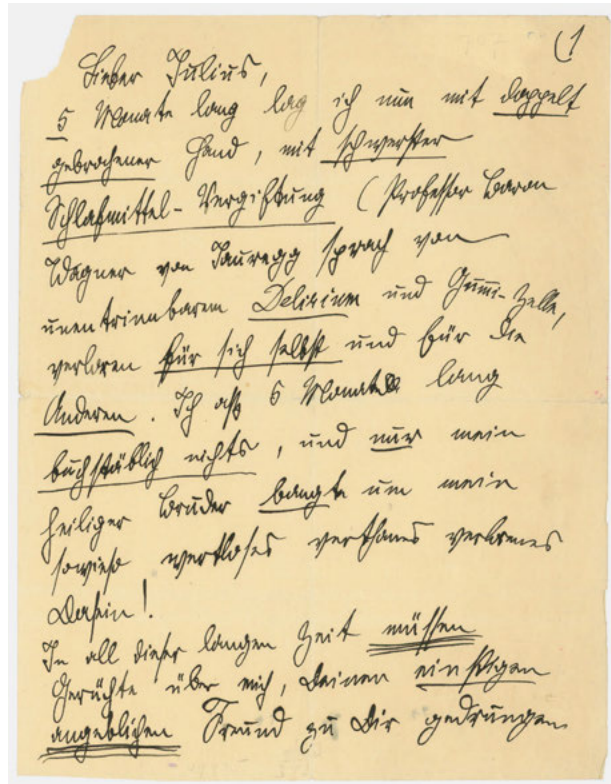 (1
Lieber Julius,
5 Monate lang lag ich nun mit doppelt
gebrochener Hand, mit schwerster
Schlafmittel-Vergiftung (Professor Baron
Wagner von Jauregg sprach von
unentrinnbarem Delirium und Gummi-Zelle,
verloren für sich selbst und für die
Anderen. Ich aß 5 Monate lang
buchstäblich nichts, und nur mein
heiliger Bruder bangte um mein
sowieso wertloses verthanes verlorenes
Dasein!
In all dieser langen Zeit müssen
Gerüchte über mich, Deinen einstigen
angeblichen Freund zu Dir gedrungen